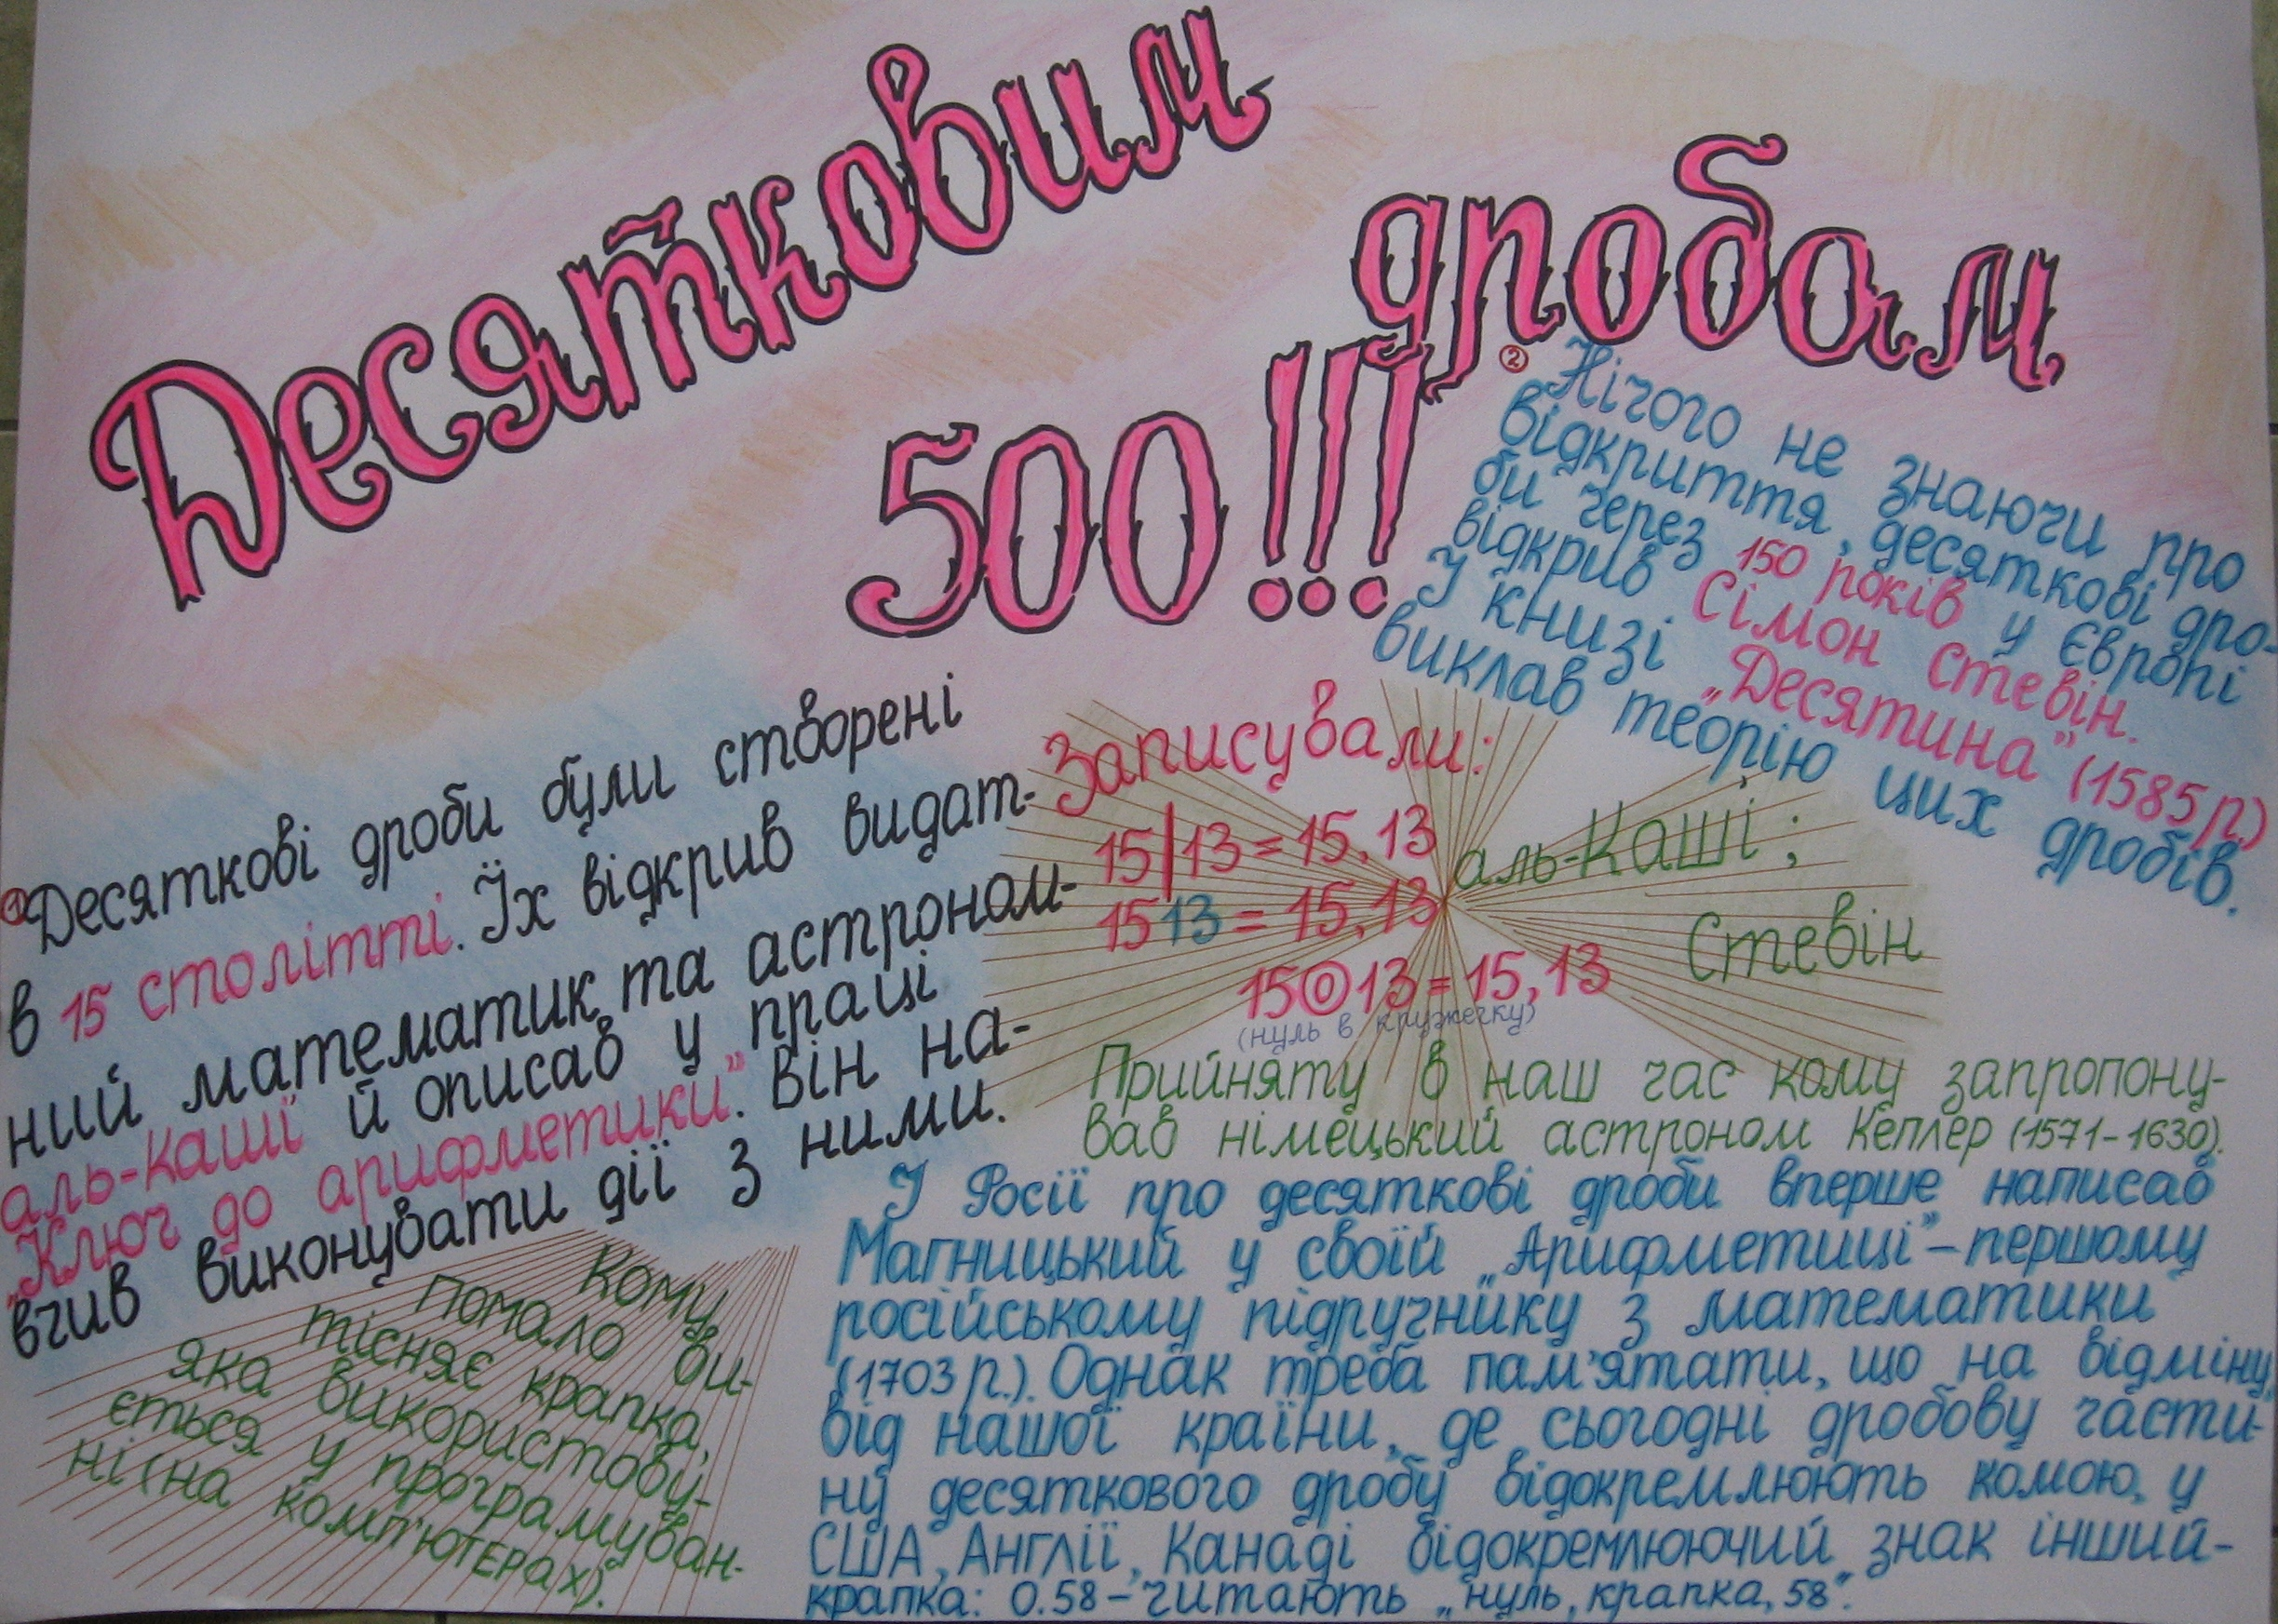 Десятковим
дробам
500!!!
① Десяткові дроби були створені
в 15 столітті. Їх відкрив видат-
ний математик та астроном-
аль-Каші й описав у праці
„Ключ до арифметики”. Він на-
вчив виконувати дії з ними.
② Нічого не знаючи про
відкриття, десяткові дро-
би через 150 років у Європі
відкрив Сімон Стевін.
У книзі „Десятина” (1585 р.)
виклав теорію цих дробів.
Записували:
15|13 = 15,13
1513 = 15,13 аль-Каші;
15⓪13 = 15,13 Стевін
(нуль в кружечку)
Прийняту в наш час кому запропону-
вав німецький астроном Кеплер (1571-1630).
У Росії про десяткові дроби вперше написав
Магницький у своїй „Арифметиці” – першому
російському підручнику з математики
(1703 р.). Однак треба пам'ятати, що на відміну
від нашої країни, де сьогодні дробову части-
ну десяткового дробу відокремлюють комою, у
США, Англії, Канаді відокремлюючий знак інший-
крапка: 0.58 – читають „нуль, крапка, 58”.
Кому
помало ви-
тісняє крапка,
яка використову-
ється у програмуван-
ні (на комп'ютерах).